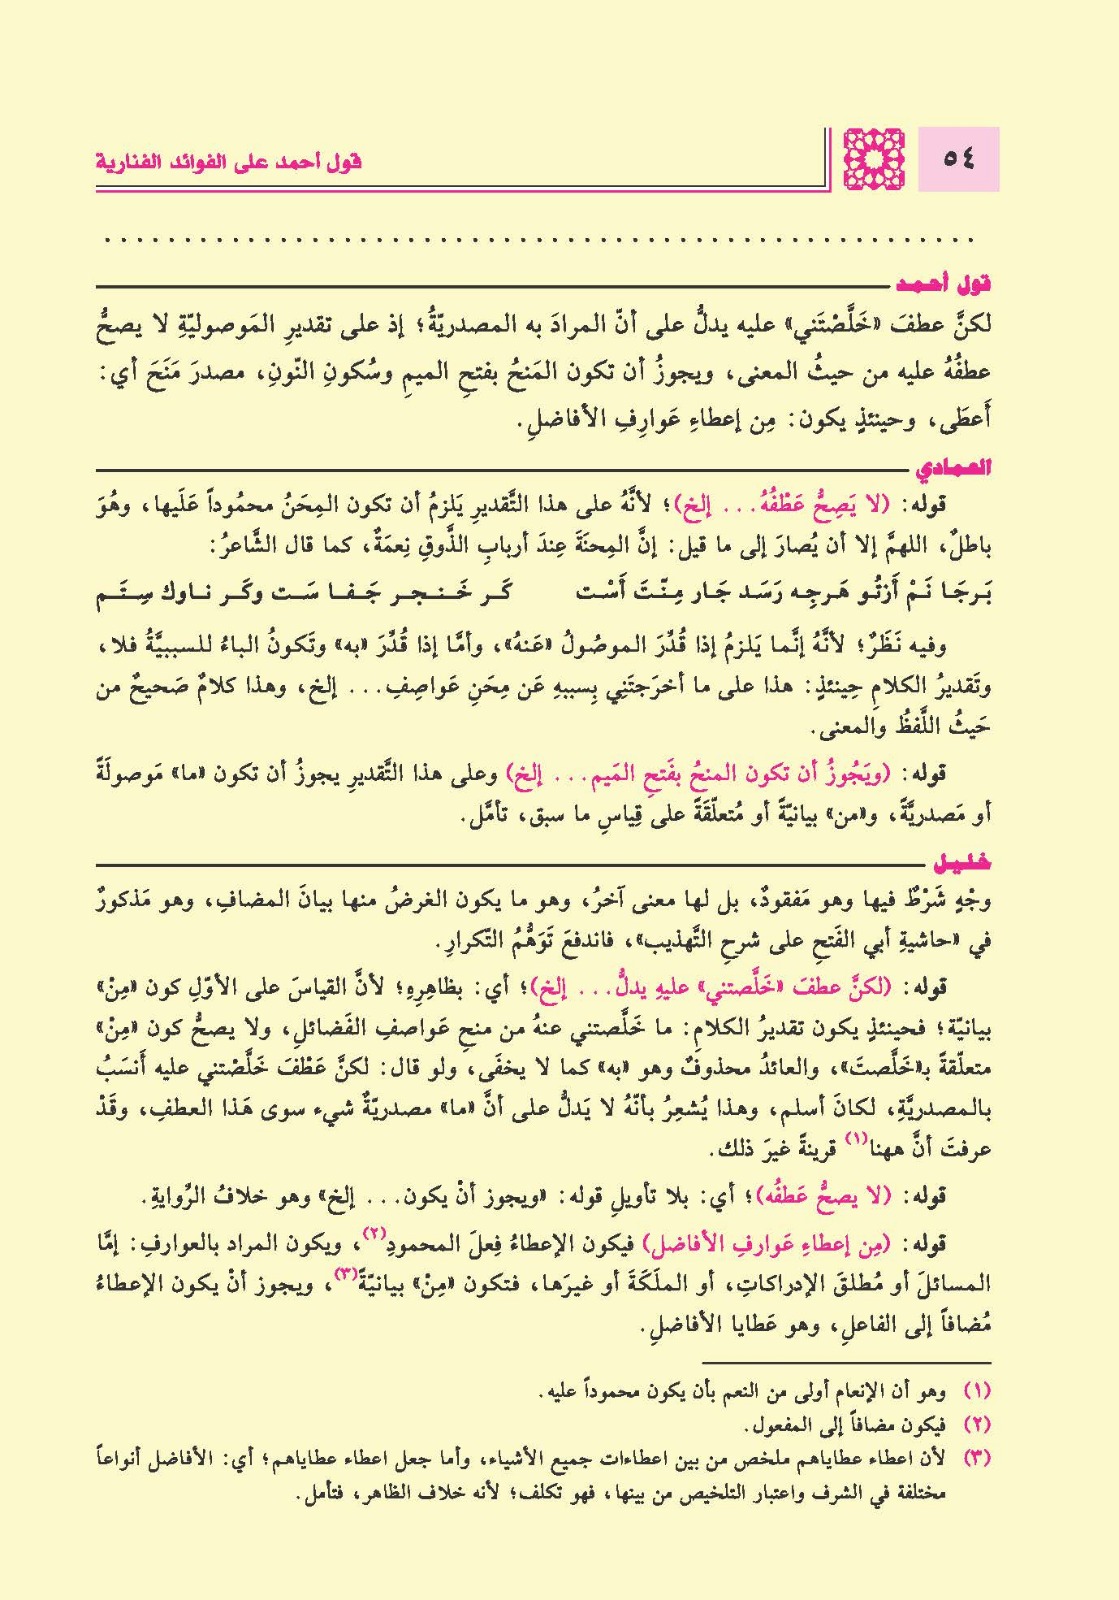 ٥٤
قول أحمد على الفوائد الفنارية
. . . . . . . . . . . . . . . . . . . . . . . . . . . . . . . . . . . . . . . . . . . . . . . . . . . . . . .
قول أحمد
لكنَّ عطفَ «خَلَّصْتَني» عليه يدلُّ على أنّ المرادَ به المصدريّةُ؛ إذْ على تقديرِ المَوصوليّةِ لا يصحُّ
عطفُهُ عليه من حيثُ المعنى، ويجوزُ أن تكون المَنحُ بفتحِ الميمِ وسُكونِ النّونِ، مصدرَ مَنَحَ أي:
أَعطَى، وحينئذٍ يكون: مِن إعطاءِ عَوارِفِ الأفاضلِ.
العمادي
قوله: (لا يَصِحُّ عَطْفُهُ... إلخ)؛ لأنَّهُ على هذا التَّقديرِ يَلزمُ أن تكون المِحَنُ محمُوداً عَلَيها، وهُوَ
باطلٌ، اللهمَّ إلا أن يُصارَ إلى ما قيل: إنَّ المِحنَةَ عِندَ أربابِ الذَّوقِ نِعمَةٌ، كما قال الشَّاعرُ:
بَرجَا نَمْ أَزتُو هَرجِه رَسَد جَار مِنّتَ أَسْت كَر خَنجر جَفا سَت وكَر ناوك سِتَم
وفيه نَظَرٌ؛ لأنَّهُ إنَّما يَلزمُ إذا قُدِّرَ الموصُولُ «عَنهُ»، وأمَّا إذا قُدِّرَ «به» وتَكونُ الباءُ للسببيَّةُ فلا،
وتَقديرُ الكلامِ حِينئذٍ: هذا على ما أخرَجتَنِي بِسببهِ عَن مِحَنِ عَواصِفِ... إلخ، وهذا كلامٌ صَحيحٌ من
حَيثُ اللَّفظُ والمعنى.
قوله: (ويَجُوزُ أن تكون المنحُ بفَتحِ المَيم... إلخ) وعلى هذا التَّقديرِ يجوزُ أن تكون «ما» مَوصولَةً
أو مَصدريَّةً، و«من» بيانيّةً أو مُتعلّقَةً على قِياسِ ما سبق، تأمَّل.
خليل
وجْهٍ شَرْطٌ فيها وهو مَفقودٌ، بل لها معنى آخرُ، وهو ما يكون الغرضُ منها بيانَ المضافِ، وهو مَذكورٌ
في «حاشيةِ أبي الفَتحِ على شرحِ التَّهذيب»، فاندفعَ تَوَهُّمُ التّكرارِ.
قوله: (لكنَّ عطفَ «خَلَّصتني» عليهِ يدلُّ... إلخ)؛ أي: بظاهِرِهِ؛ لأنَّ القياسَ على الأوّلِ كون «مِنْ»
بيانيّة؛ فحينئذٍ يكون تقديرُ الكلامِ: ما خَلَّصتني عنهُ من منحِ عَواصفِ الفَضائلِ، ولا يصحُّ كون «مِنْ»
متعلّقةً بـ«خَلَّصتَ»، والعائدُ محذوفٌ وهو «به» كما لا يخفَى، ولو قال: لكنَّ عَطْفَ خَلَّصْتني عليه أَنسَبُ
بالمصدريَّةِ، لكانَ أسلم، وهذا يُشعِرُ بأنّهُ لا يَدلُّ على أنَّ «ما» مصدريّةٌ شيء سوى هَذا العطفِ، وقَدْ
عرفتَ أنَّ ههنا(١) قرينةً غيرَ ذلك.
قوله: (لا يصحُّ عَطفُه)؛ أي: بلا تأويلِ قوله: «ويجوز أنْ يكون... إلخ» وهو خلافُ الرِّوايةِ.
قوله: (مِن إعطاءِ عَوارفِ الأفاضل) فيكون الإعطاءُ فِعلَ المحمودِ(٢)، ويكون المراد بالعوارفِ: إمَّا
المسائلَ أو مُطلقَ الإدراكاتِ، أو الملَكَةَ أو غيرَها، فتكون «مِنْ» بيانيّةً(٣)، ويجوز أنْ يكون الإعطاءُ
مُضافاً إلى الفاعلِ، وهو عَطايا الأفاضلِ.
(١) وهو أن الإنعام أولى من النعم بأن يكون محموداً عليه.
(٢) فيكون مضافاً إلى المفعول.
(٣) لأن اعطاء عطاياهم ملخص من بين اعطاءات جميع الأشياء، وأما جعل اعطاء عطاياهم؛ أي: الأفاضل أنواعاً
مختلفة في الشرف واعتبار التلخيص من بينها، فهو تكلف؛ لأنه خلاف الظاهر، فتأمل.